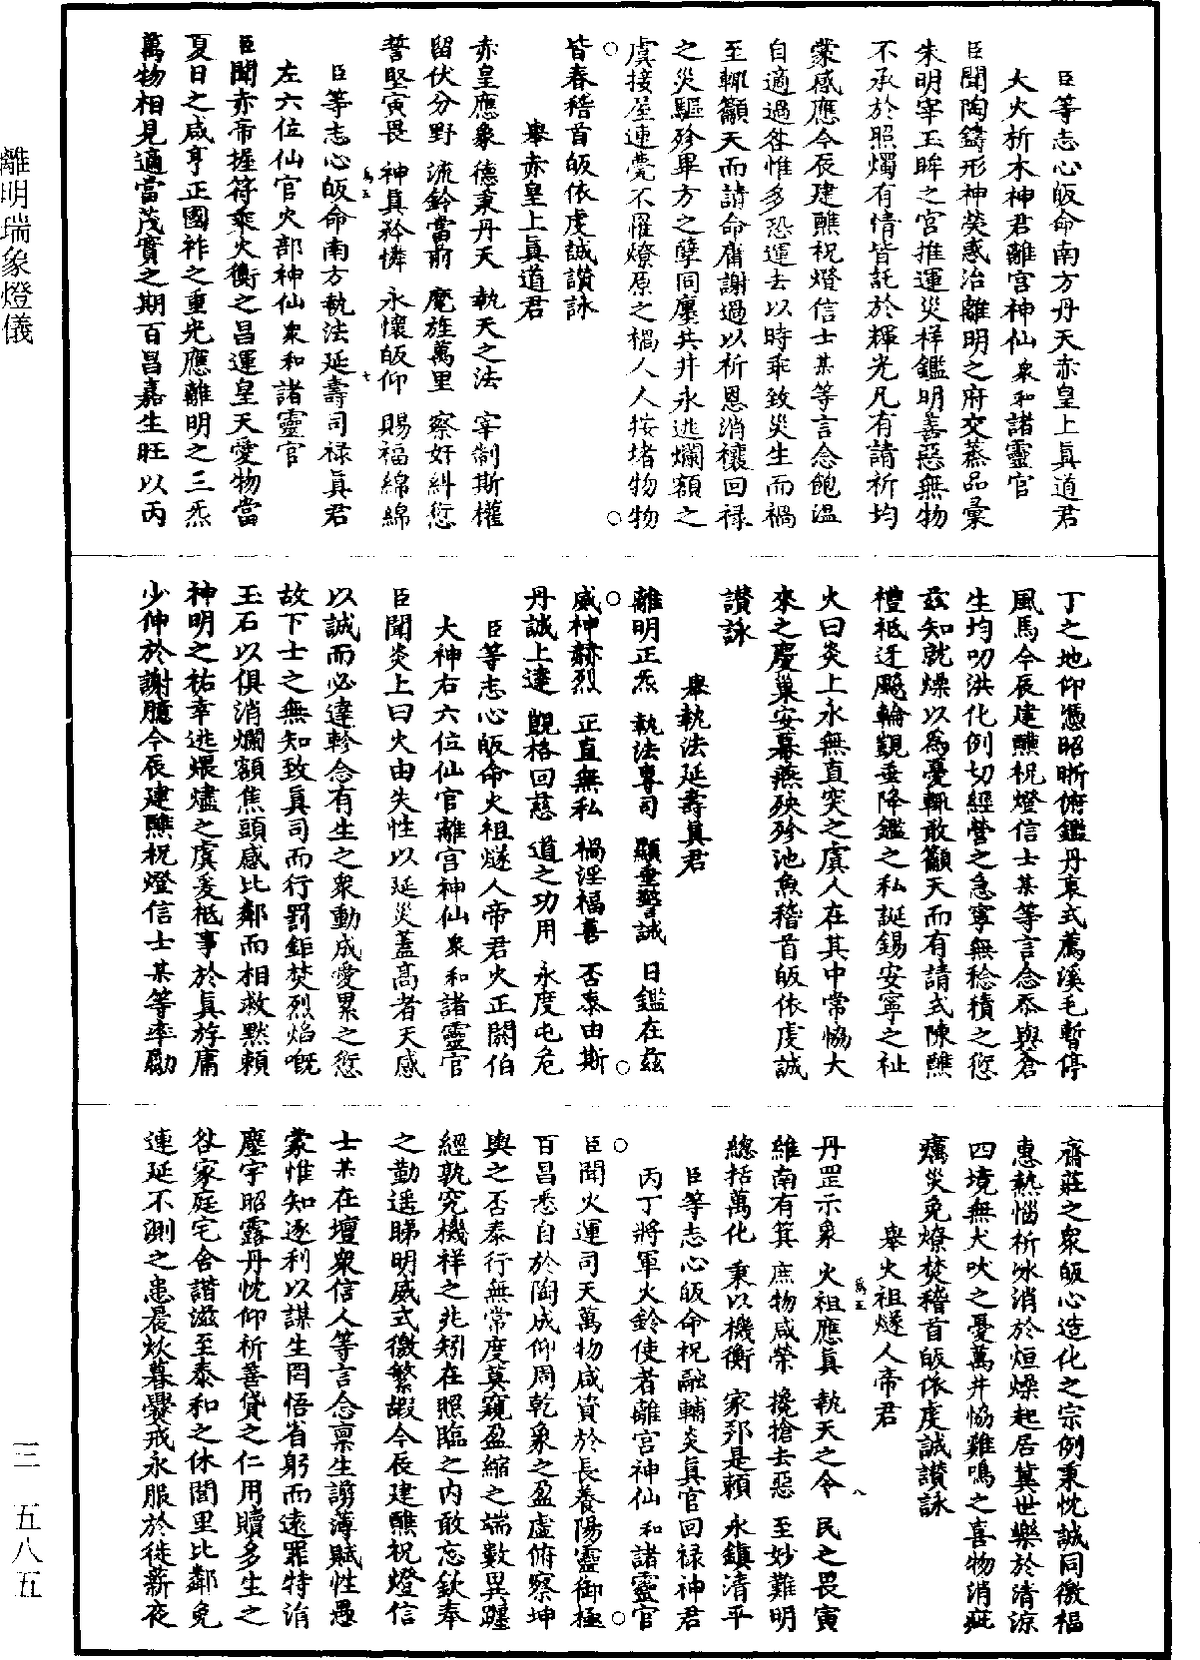 離明瑞象燈儀
三 五八五
臣等志心皈命南方丹天赤皇上眞道君
大火析木神君離宮神仙衆和諸靈官
臣聞陶鑄形神熒惑治離明之府交蒸品彙
朱明宰玉眸之宮推運災祥鑑明善惡無物
不承於照燭有情皆託於輝光凡有請祈均
蒙感應今辰建醮祝燈信士某等言念飽溫
自適過咎惟多恐運去以時乖致災生而禍
至輒籲天而請命庸謝過以祈恩消禳回祿
之災驅殄畢方之孽同廛共井永逃爛額之
虞接屋連甍不罹燎原之禍人人按堵物物
皆春稽首皈依虔誠讃詠
舉赤皇上眞道君
赤皇應象 德秉丹天 執天之法 宰制斯權
留伏分野 流鈴當前 麾旌萬里 察奸糾愆
誓堅寅畏 神眞矜憐 永懷皈仰 賜福綿綿
爲五 七
臣等志心皈命南方執法延壽司祿眞君
左六位仙官火部神仙衆和諸靈官
臣聞赤帝握符乘火衡之昌運皇天愛物當
夏日之咸亨正國祚之重光應離明之三炁
萬物相見適當茂實之期百昌嘉生旺以丙
丁之地仰憑昭晣俯鑑丹衷式薦溪毛暫停
風馬今辰建醮祝燈信士某等言念忝與倉
生均叨洪化例切經營之急寧無稔積之愆
玆知就燥以爲憂輒敢籲天而有請式陳醮
禮祗迓颷輪覬垂降鑑之私誕錫安寧之祉
火曰炎上永無直突之虞人在其中常恊大
來之慶巢安幕燕殃殄池魚稽首皈依虔誠
讃詠
舉執法延壽眞君
離明正炁 執法專司 顯垂警誡 日鑑在玆
威神赫烈 正直無私 禍淫福善 否泰由斯
丹誠上達 覬格回慈 道之功用 永度屯危
臣等志心皈命火祖燧人帝君火正閼伯
大神右六位仙官離宮神仙衆和諸靈官
臣聞炎上曰火由失性以延災蓋高者天感
以誠而必達軫念有生之衆動成愛累之愆
故下士之無知致眞司而行罰鉅焚烈焰嘅
玉石以俱消爛額焦頭感比鄰而相救默賴
神明之祐幸逃煨燼之虞爰柢事於眞游庸
少伸於謝臆今辰建醮祝燈信士某等率勵
齋莊之衆皈心造化之宗例秉忱誠同徼福
惠熱惱祈冰消於烜燥起居冀世樂於清涼
四境無犬吠之憂萬井恊雞鳴之喜物消疵
癘災免燎焚稽首皈依虔誠讃詠
舉火祖燧人帝君
丹罡示象 火祖應眞 執天之令 民之畏寅
爲五 八
維南有箕 庶物咸榮 攙搶去惡 至妙難明
總括萬化 秉以機衡 家邦是賴 永鎮清平
臣等志心皈命祝融輔炎眞官回祿神君
丙丁將軍火鈴使者離宮神仙和諸靈官
臣聞火運司天萬物咸資於長養陽靈御極
百昌悉自於陶成仰周乾象之盈虛俯察坤
輿之否泰行無常度莫窺盈縮之端數異躔
經孰究機祥之兆矧在照臨之内敢忘欽奉
之勤遥睇明威式徼繁嘏今辰建醮祝燈信
士某在壇衆信人等言念禀生謭薄賦性愚
蒙惟知逐利以謀生罔悟省躬而遠罪特涓
塵宇昭露丹忱仰祈善貸之仁用贖多生之
咎家庭宅舍諧滋至泰和之休閭里比鄰免
連延不測之患晨炊暮爨戒永服於徙薪夜